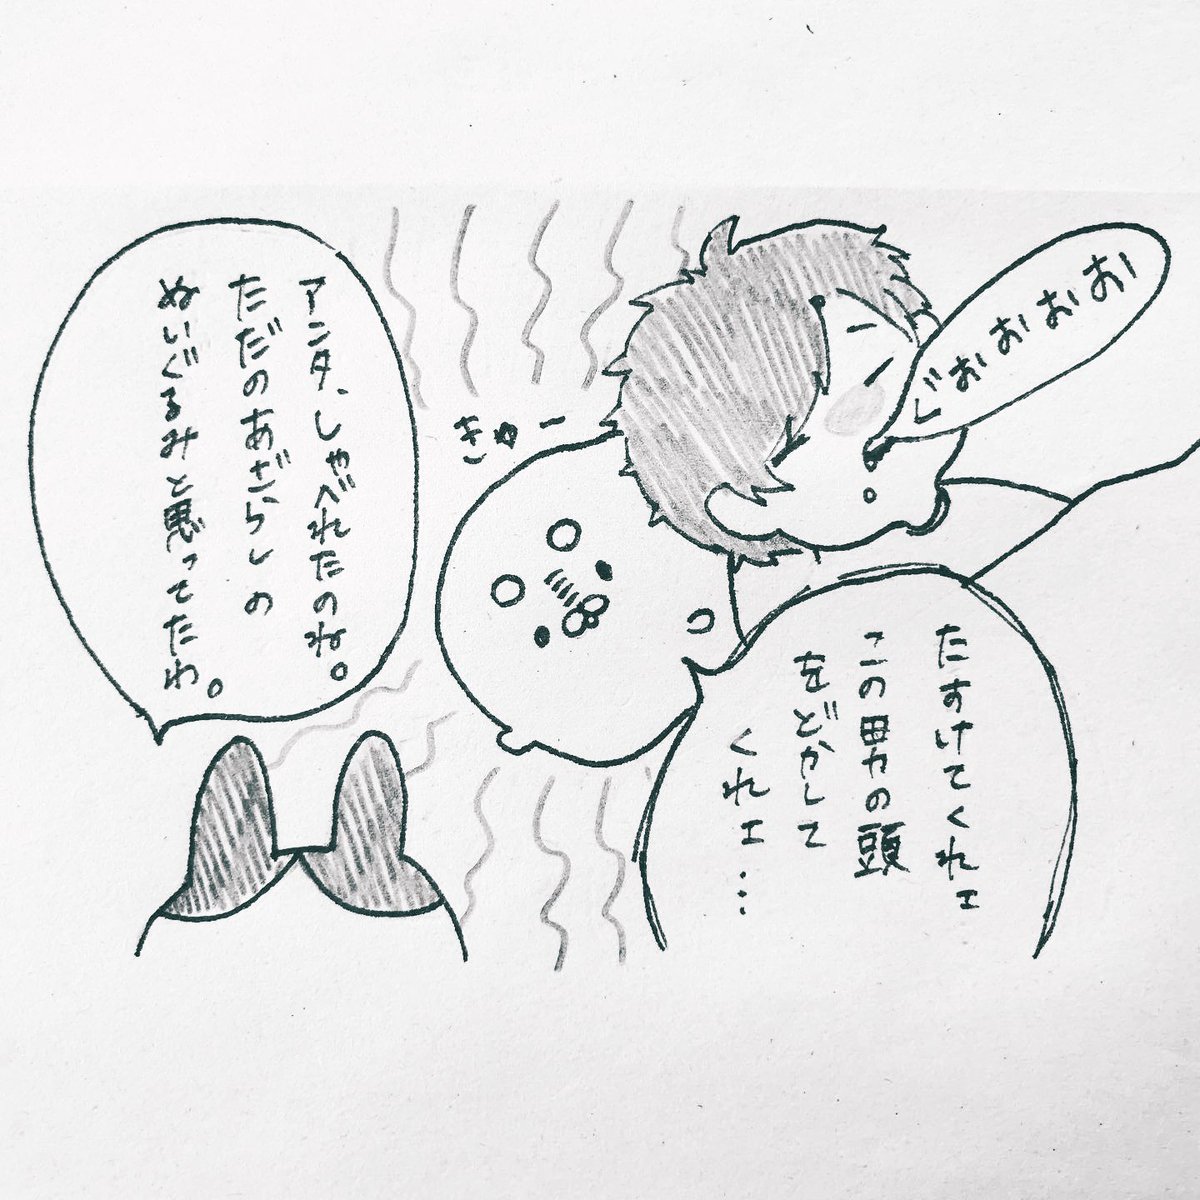 ごおおおお
たすけてくれェ
この男の頭
をどかして
くれェ…
きゅー
アンタ、しゃべれたのね。
ただのあざらしの
ぬいぐるみと思ってたわ。